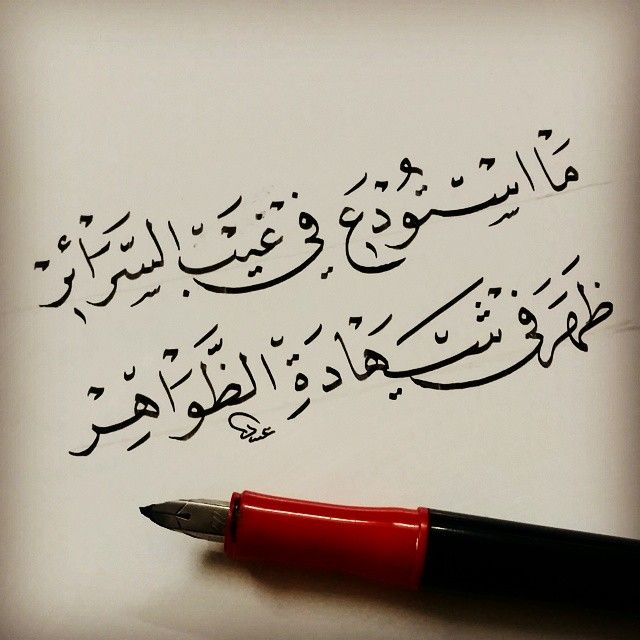 مَا اسْتُودِعَ فِي غَيْبِ السَّرَائِرِ
ظَهَرَ فِي شَهَادَةِ الظَّوَاهِرِ